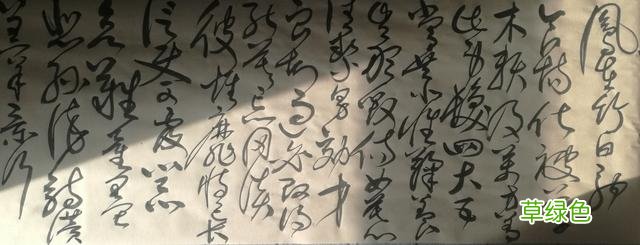 鳳在竹白駒
食場化被草
木賴及萬方蓋
此身髮四大五
常恭惟鞠養
豈敢毀傷女慕
貞潔男效才
良知過必改得
能莫忘罔談
彼短靡恃己長
信使可覆器
欲難量墨
悲絲染詩讚
羔羊景行
草绿色